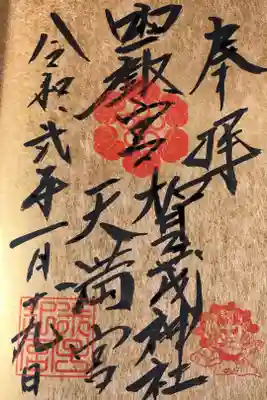 奉拝
賀茂神社
宮
天満宮
令和弐年一月十九日